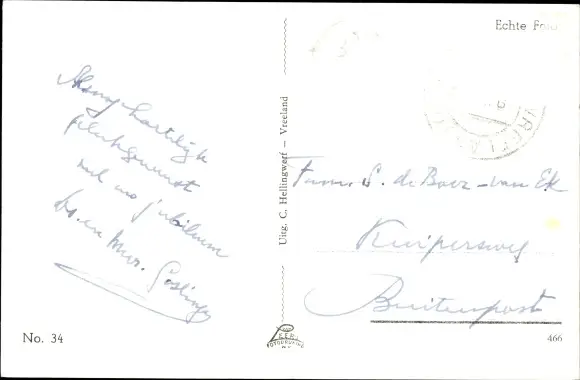 Echte Foto
hartelijk
gelukgewenst
met uw jubileum
en Mevr.
Uitg. C. Hellingwerf – Vreeland
VREELAND
S. de Boer - van Ek
Kuipersweg
Buitenpost
No. 34
466